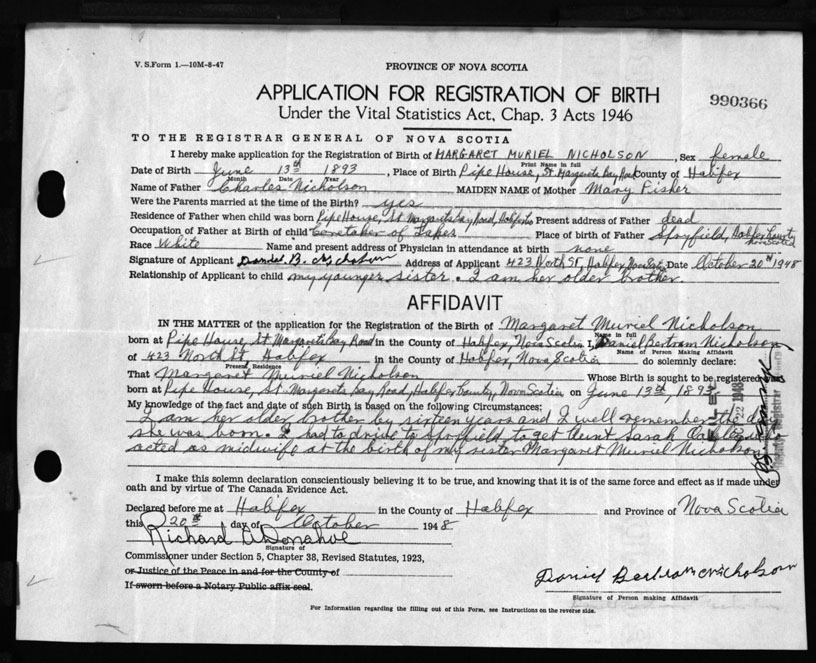 V. S. Form 1.—10M-8-47
PROVINCE OF NOVA SCOTIA
APPLICATION FOR REGISTRATION OF BIRTH
990366
Under the Vital Statistics Act, Chap. 3 Acts 1946
TO THE REGISTRAR GENERAL OF NOVA SCOTIA
I hereby make application for the Registration of Birth of MARGARET MURIEL NICHOLSON, Sex female
Print Name in full
Date of Birth June 13th 1893, Place of Birth Pipe House, St Margarets Bay Road County of Halifax
Month Date Year
Name of Father Charles Nicholson MAIDEN NAME of Mother Mary Fisher
Were the Parents married at the time of the Birth? yes
Residence of Father when child was born Pipe House, St Margarets Bay Road, Halifax Present address of Father dead
Occupation of Father at Birth of child Caretaker of Lakes Place of birth of Father Spryfield, Halifax County, Nova Scotia
Race White Name and present address of Physician in attendance at birth none
Signature of Applicant Daniel B. Nicholson Address of Applicant 423 North St, Halifax Date October 20th 1948
Relationship of Applicant to child my younger sister. I am her older brother
AFFIDAVIT
IN THE MATTER of the application for the Registration of the Birth of Margaret Muriel Nicholson
Name in full
born at Pipe House, St. Margarets Bay Road in the County of Halifax, Nova Scotia I, Daniel Bertram Nicholson
Name of Person Making Affidavit
of 423 North St. Halifax in the County of Halifax, Nova Scotia do solemnly declare:
Present Residence
That Margaret Muriel Nicholson Whose Birth is sought to be registered
born at Pipe House, St Margarets Bay Road, Halifax County, Nova Scotia on June 13th, 1893
My knowledge of the fact and date of such Birth is based on the following Circumstances:
I am her older brother by sixteen years and I well remember the day
she was born. I had to drive to Spryfield, to get Aunt Sarah who
acted as midwife at the birth of my sister Margaret Muriel Nicholson
I make this solemn declaration conscientiously believing it to be true, and knowing that it is of the same force and effect as if made under
oath and by virtue of The Canada Evidence Act.
Declared before me at Halifax in the County of Halifax and Province of Nova Scotia
this 20th day of October 1948
Richard A Donahoe
Signature of
Commissioner under Section 5, Chapter 38, Revised Statutes, 1923,
or Justice of the Peace in and for the County of
If sworn before a Notary Public affix seal.
Daniel Bertram Nicholson
Signature of Person making Affidavit
For Information regarding the filling out of this Form, see Instructions on the reverse side.